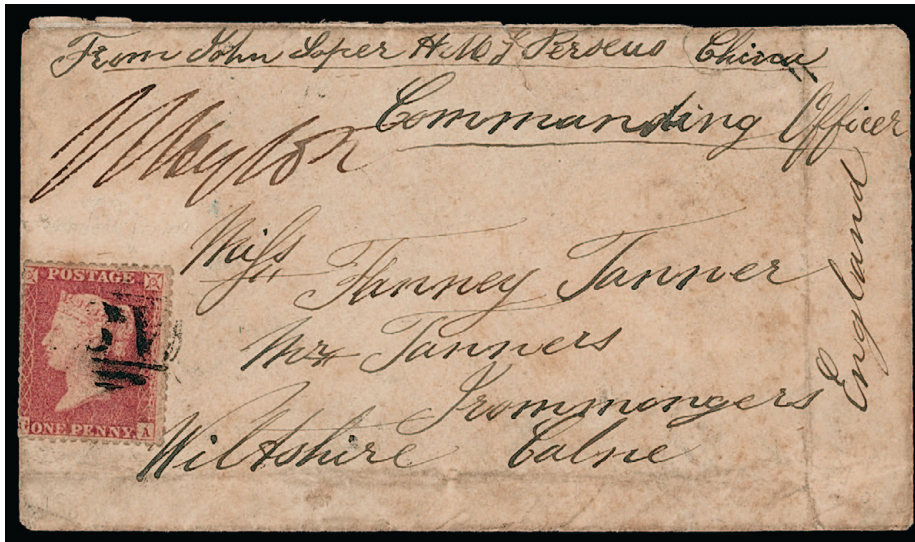 From John Loper H.M.S Perseus China
Commanding Officer
Miss
Fanney Tanner
Mr Tanners
Irommongers
Wiltshire Calne
England
POSTAGE
ONE PENNY
A